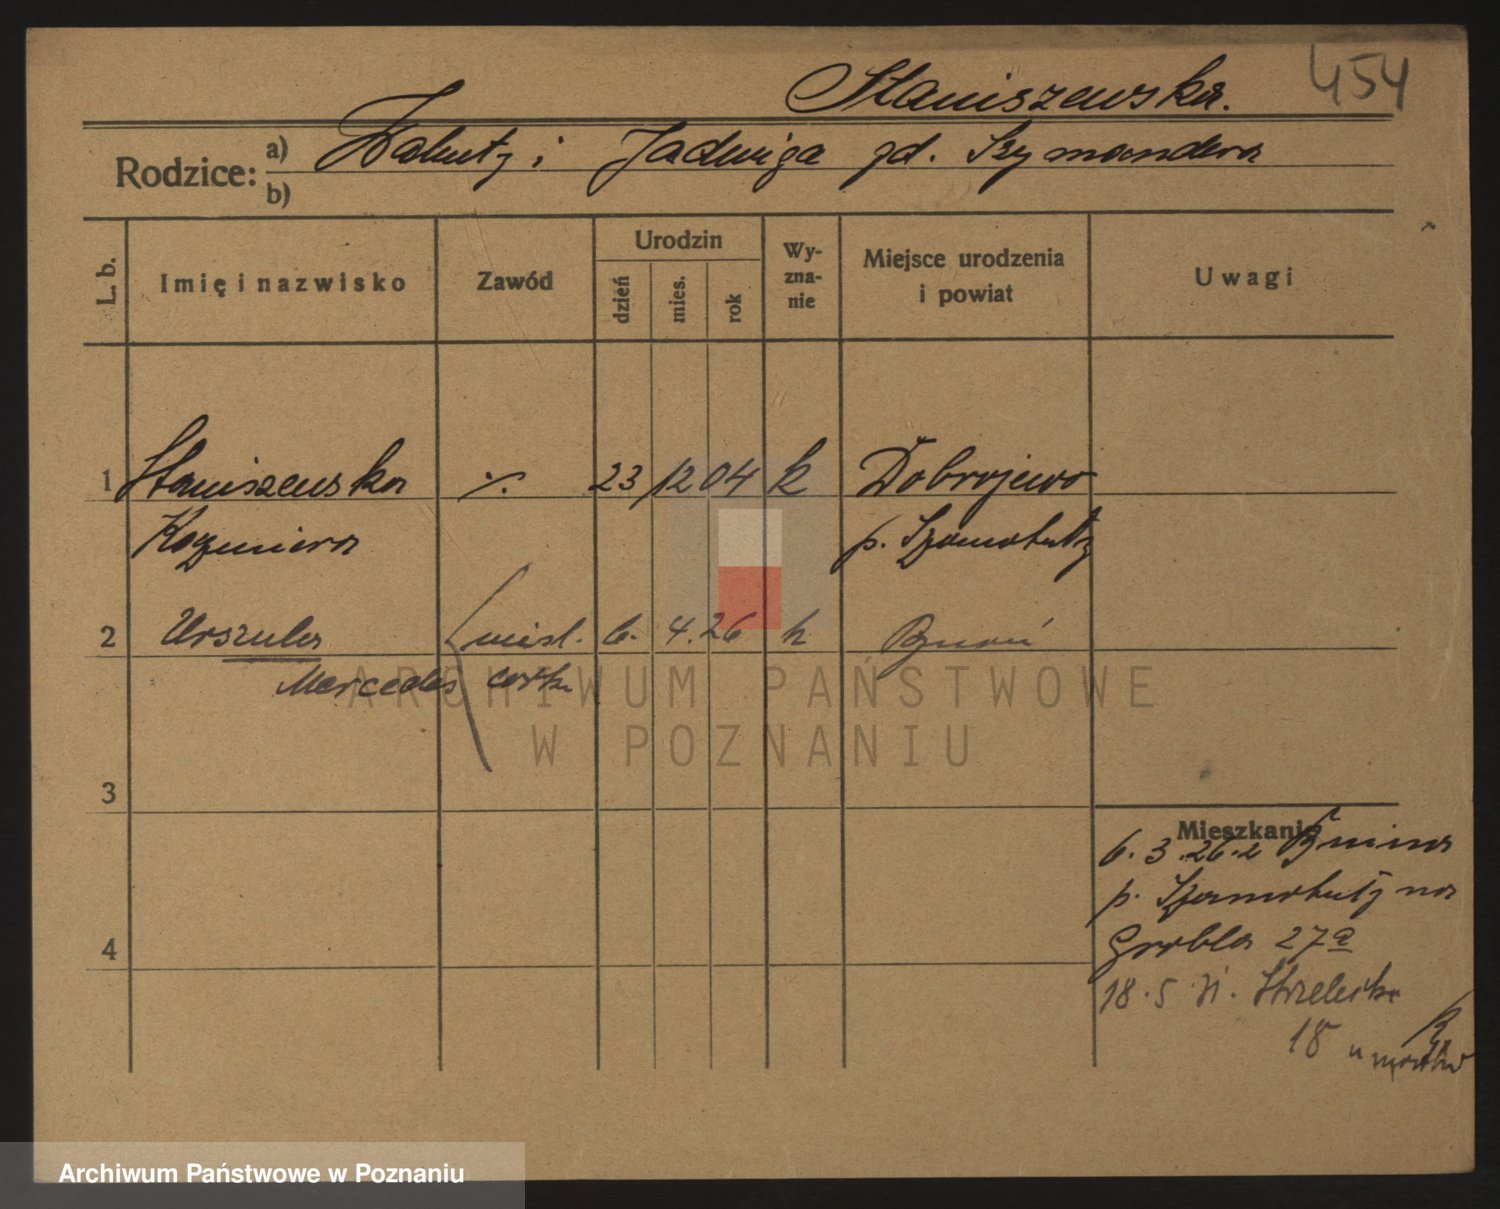 454
Staniszewska.
Rodzice: a) Walenty i Jadwiga zd. Szymandera
b)
L. b.
Imię i nazwisko
Zawód
Urodzin
dzień
mies.
rok
Wy-
zna-
nie
Miejsce urodzenia
i powiat
Uwagi
1 Staniszewska ·/. 23 12 04 k Dobrojewo
Kazimiera p. Szamotuły
2 Urszula 6. 4. 26 k
Mercedes córka
3
Mieszkanie
6. 3. 26. z
p. Szamotuły na
Grobla 27a
4
18. 5 31. Strzelecka
18
ARCHIWUM PAŃSTWOWE
W POZNANIU
Archiwum Państwowe w Poznaniu